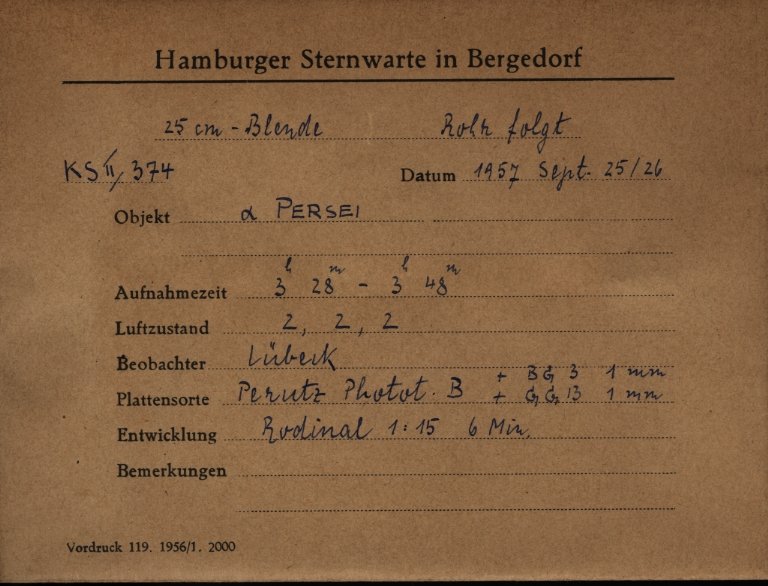 Hamburger Sternwarte in Bergedorf
25 cm - Blende Rohr folgt
KS II/374 Datum 1957 Sept. 25/26
Objekt α PERSEI
Aufnahmezeit 3h 28m - 3h 48m
Luftzustand 2, 2, 2
Beobachter Lübeck
+ BG 3 1 mm
Plattensorte Perutz Photot. B + GG 13 1 mm
Entwicklung Rodinal 1:15 6 Min.
Bemerkungen
Vordruck 119. 1956/1. 2000